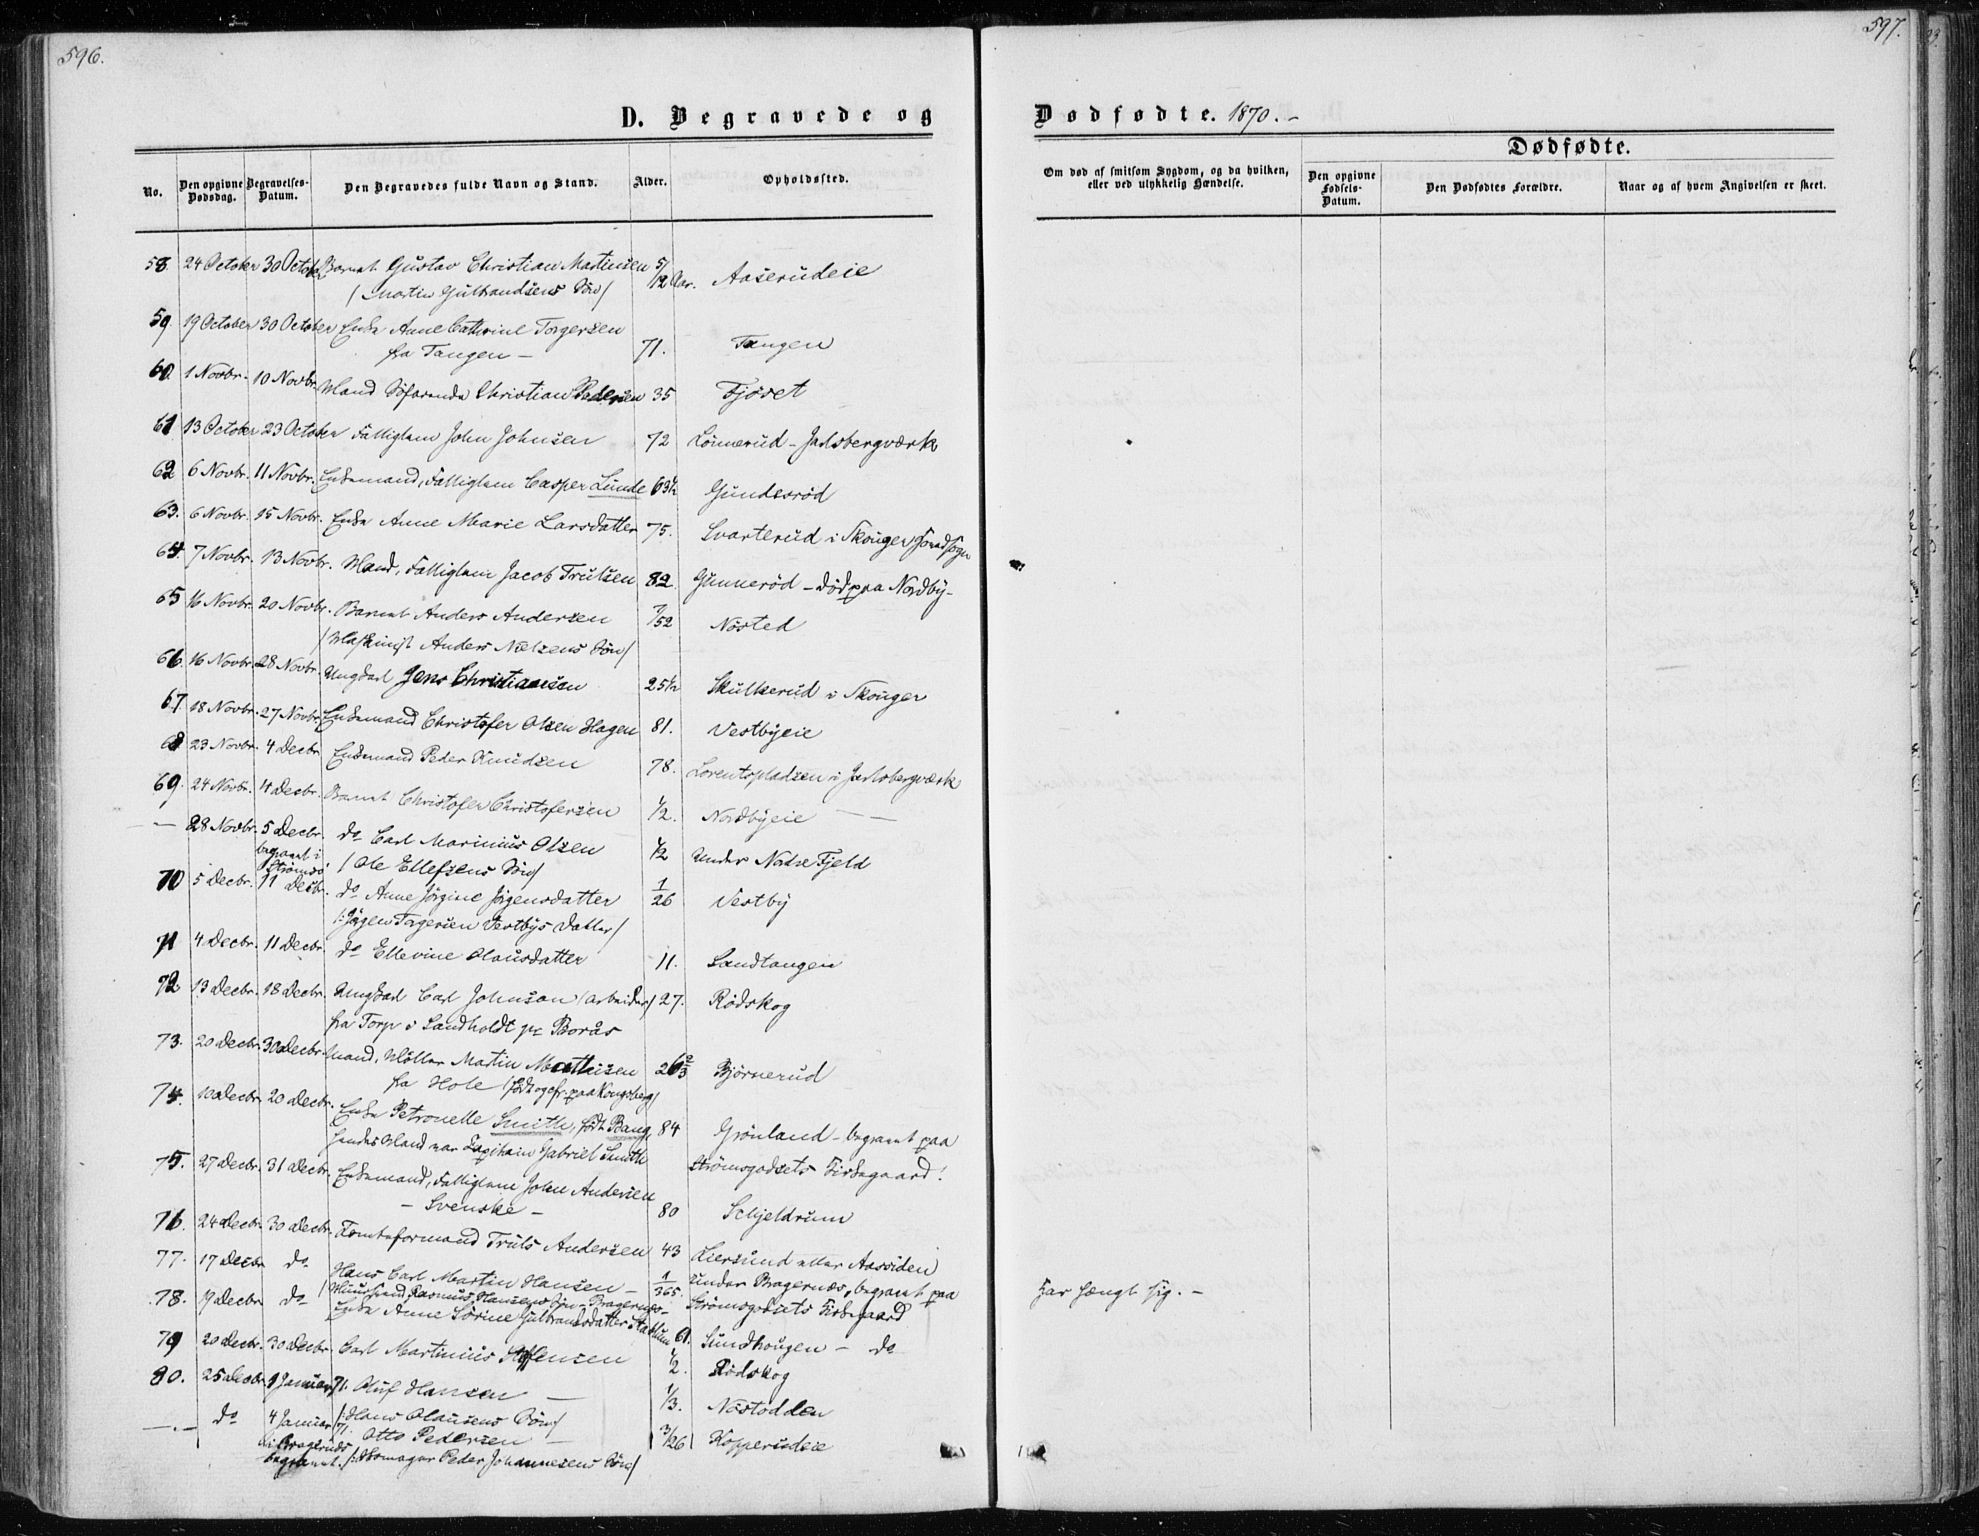 596.
597.
D. Begravede og
Dødfødte. 1870.-
No.
Den opgivne Dødsdag.
Begravelses-Datum.
Den Begravedes fulde Navn og Stand.
Alder.
Opholdssted.
Om død af smitsom Sygdom, og da hvilken, eller ved ulykkelig Hændelse.
Dødfødte.
Den opgivne Fødsels-Datum.
Den Dødfødtes Forældre.
Naar og af hvem Angivelsen er skeet.
58. 24 October 30 October Barnet Gustav Christian Martinsen 5/12 Aar. Aaserudeie
/Martin Gulbrandsens Søn/
59. 19 October 30 October Enke Anne Cathrine Torgersen
fra Tangen - 71. Tangen
60. 1 Novbr. 10 Novbr. Mand Søfarende Christian Pedersen 35 Fjøset
61 13 October 23 October Fattiglem John Johnsen 72 Lönnerud - Jarlsbergværk
62 6 Novbr. 11 Novbr. Enkemand, Fattiglem Casper Lunde 63½ Gundesrød
63. 6 Novbr. 15 Novbr. Enke Anne Marie Larsdatter 75. Svarterud i Skouger
64. 7 Novbr. 13 Novbr. Mand, Fattiglem Jacob Trulsen 82. Gunnerød - død paa Nordby-
65 16 Novbr. 20 Novbr. Barnet Anders Andersen 7/52 Nøsted
/Maskinist Anders Nielsens Søn/
66. 16 Novbr. 28 Novbr. Ungkarl Jens Christiansen 25½ Skulkerud i Skouger
67. 18 Novbr. 27 Novbr. Enkemand Christofer Olsen Hagen 81. Vestbyeie
68 23 Novbr. 4 Decbr. Enkemand Peder Knudsen 78. Lorentspladsen i Jarlsbergværk
69. 24 Novbr. 4 Decbr. Barnet Christofer Christofersen ½. Nordbyeie
— 28 Novbr. 5 Decbr. do Carl Marinius Olsen ½ Under Nedre Fjeld
begravet i Strømsø /Ole Ellefsens Søn/
70 5 Decbr. 11 Decbr. do Anne Jörgine Jörgensdatter 1/26 Vestby
/:Jörgen Tagersen Vestbys Datter/
71 4 Decbr. 11 Decbr. do Ellevine Olausdatter 11. Sandtangen
72 13 Decbr. 18 Decbr. Ungkarl Carl Johnson /Arbeider/ 27. Rødskog
fra Torp i Sandholdt pr Borås
73. 20 Decbr. 30 Decbr. Mand, Møller Martin Mathisen 26⅔ Björnerud
fra Hole /født og fr. paa Kongsberg/
74. 10 Decbr. 20 Decbr. Enke Petronelle Smith, født Bang, 84 Grönland - begravet paa
hendes Mand var Kapitain Gabriel Smith Strömsgodsets Kirkegaard!
75. 27 Decbr. 31 Decbr. Enkemand, Fattiglem John Andersen
- Svenske - 80 Schjeldrum
76. 24 Decbr. 30 Decbr. Tomteformand Truls Andersen 43 Liersund eller Aassiden
77. 17 Decbr do Hans Carl Martin Hansen - 1/365. under Bragernæs, begravet paa
/Huusmand Rasmus Hansens Søn - Bragernæs- Strömsgodsets Kirkegaard
Har hængt sig. -
78. 19 Decbr. do Enke Anne Sörine Gulbrandsdatter 61. Sundhougen - do
79 20 Decbr. 30 Decbr. Carl Martinius Steffensen ½. Rødskog
80. 25 Decbr. 1 Januar 71. Oluf Hansen - 1/3. Næstodden
/:Hans Olausens Søn/
—.— do 4 Januar 71 Otto Pedersen - 3/26 Kopperudeie
i Bragernæs begravet. /:Skomager Peder Johannesens Søn/